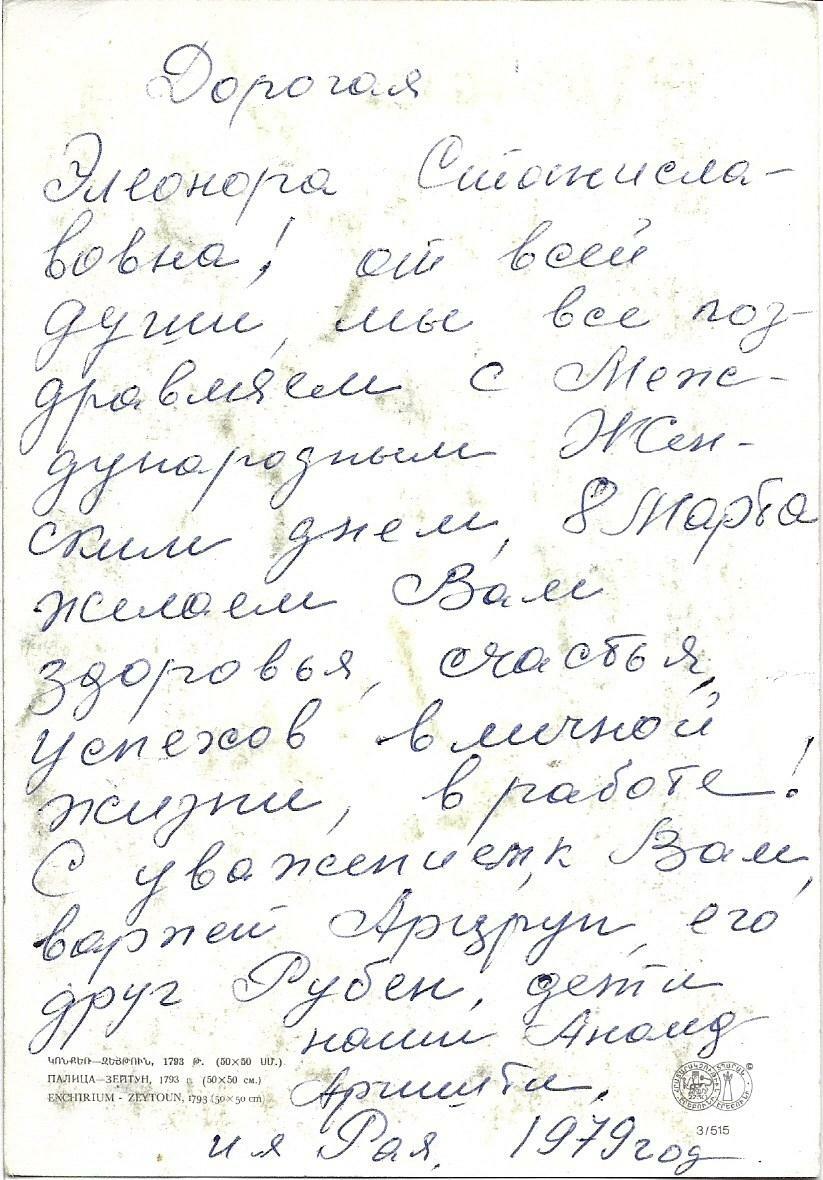 Дорогая
Элеонора Станисла-
вовна! от всей
души, мы все поз-
дравляем с Меж-
дународным Жен-
ским днем, 8 Марта
желаем Вам
здоровья, счастья,
успехов в личной
жизни, в работе!
С уважением, к Вам,
Арцрун, его
друг Рубен, дети
наши
ԿՈՆՔԵՌ—ԶԵՅԹՈՒՆ, 1793 Թ. (50×50 ՍՄ.)
ПАЛИЦА—ЗЕЙТУН, 1793 г. (50×50 см.)
ENCHIRIUM - ZEYTOUN, 1793 (50×50 cm)
и я Рая, 1979 год
©
3/515